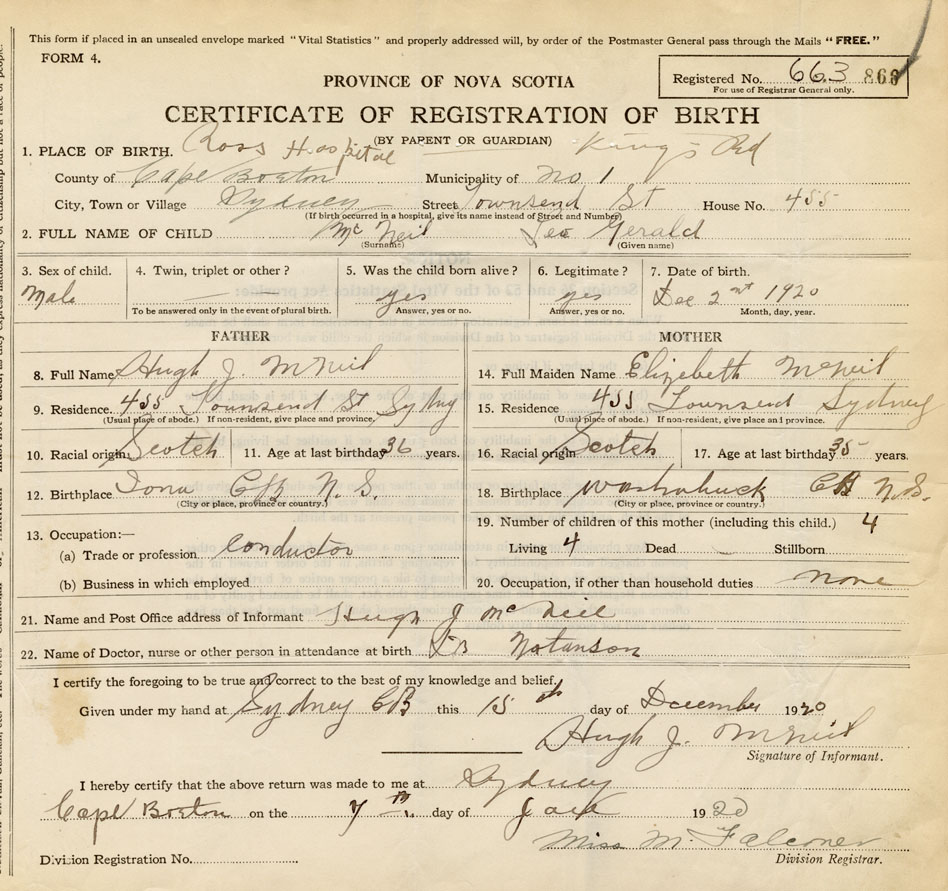 This form if placed in an unsealed envelope marked "Vital Statistics" and properly addressed will, by order of the Postmaster General pass through the Mails "FREE."
FORM 4.
Registered No. 663 868
For use of Registrar General only.
PROVINCE OF NOVA SCOTIA
CERTIFICATE OF REGISTRATION OF BIRTH
(BY PARENT OR GUARDIAN)
1. PLACE OF BIRTH. Ross Hospital Kings Rd
County of Cape Breton Municipality of No 1
City, Town or Village Sydney Street Townsend St House No. 455
(If birth occurred in a hospital, give its name instead of Street and Number)
2. FULL NAME OF CHILD McNeil Leo Gerald
(Surname) (Given name)
3. Sex of child. 4. Twin, triplet or other? 5. Was the child born alive? 6. Legitimate? 7. Date of birth.
Male yes yes Dec 2 1920
To be answered only in the event of plural birth. Answer, yes or no. Answer, yes or no. Month, day, year.
FATHER MOTHER
8. Full Name Hugh J. McNeil 14. Full Maiden Name Elizabeth McNeil
9. Residence. 455 Townsend St Sydney 15. Residence 455 Townsend Sydney
(Usual place of abode.) If non-resident, give place and province. (Usual place of abode.) If non-resident, give place and province.
10. Racial origin Scotch 11. Age at last birthday 36 years. 16. Racial origin Scotch 17. Age at last birthday 35 years.
12. Birthplace Iona CB N.S. 18. Birthplace Washabuck CB N.S.
(City or place, province or country.) (City or place, province or country.)
13. Occupation:— 19. Number of children of this mother (including this child.) 4
(a) Trade or profession Conductor Living 4 Dead Stillborn
(b) Business in which employed 20. Occupation, if other than household duties None
21. Name and Post Office address of Informant Hugh J McNeil
22. Name of Doctor, nurse or other person in attendance at birth Dr
I certify the foregoing to be true and correct to the best of my knowledge and belief.
Given under my hand at Sydney CB this 15th day of December 1920
Hugh J. McNeil
Signature of Informant.
I hereby certify that the above return was made to me at Sydney
Cape Breton on the 7th day of 19
Miss M. Falconer
Division Registration No. Division Registrar.